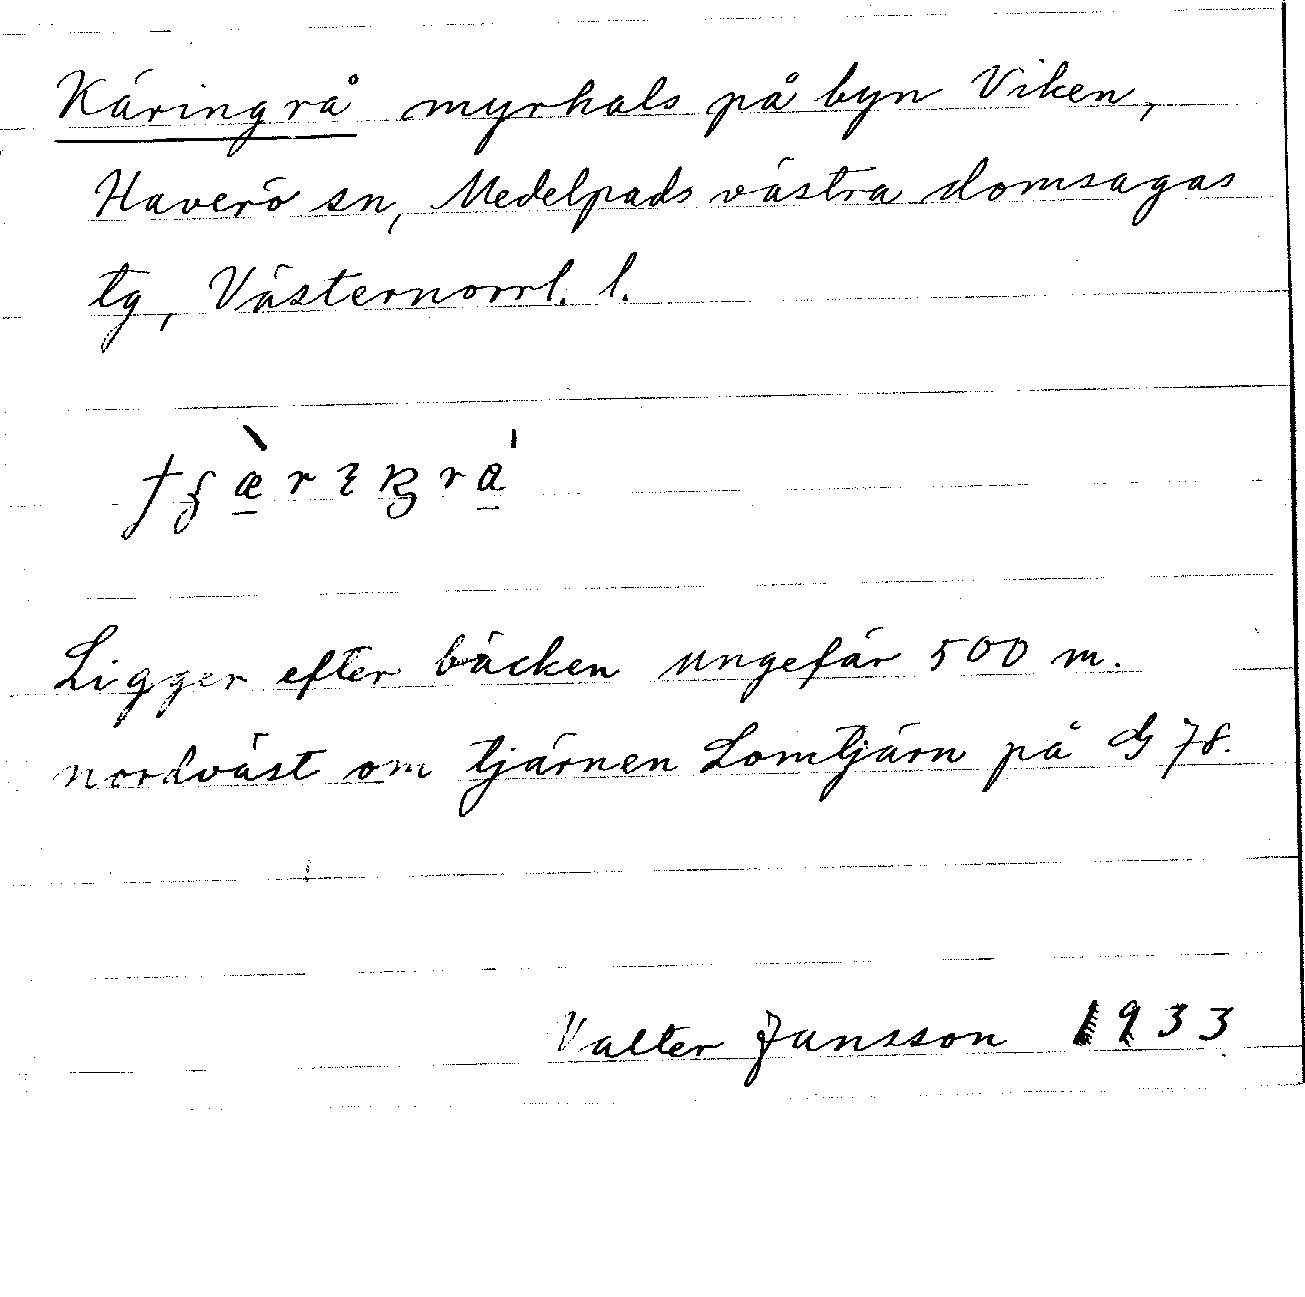 Käringrå myrhals på byn Viken,
Haverö sn, Medelpads västra domsagas
tg, Västernorrl. l.
Ligger efter bäcken ungefär 500 m.
nordväst om tjärnen Lomtjärn på G 78.
Valter Jansson 1933